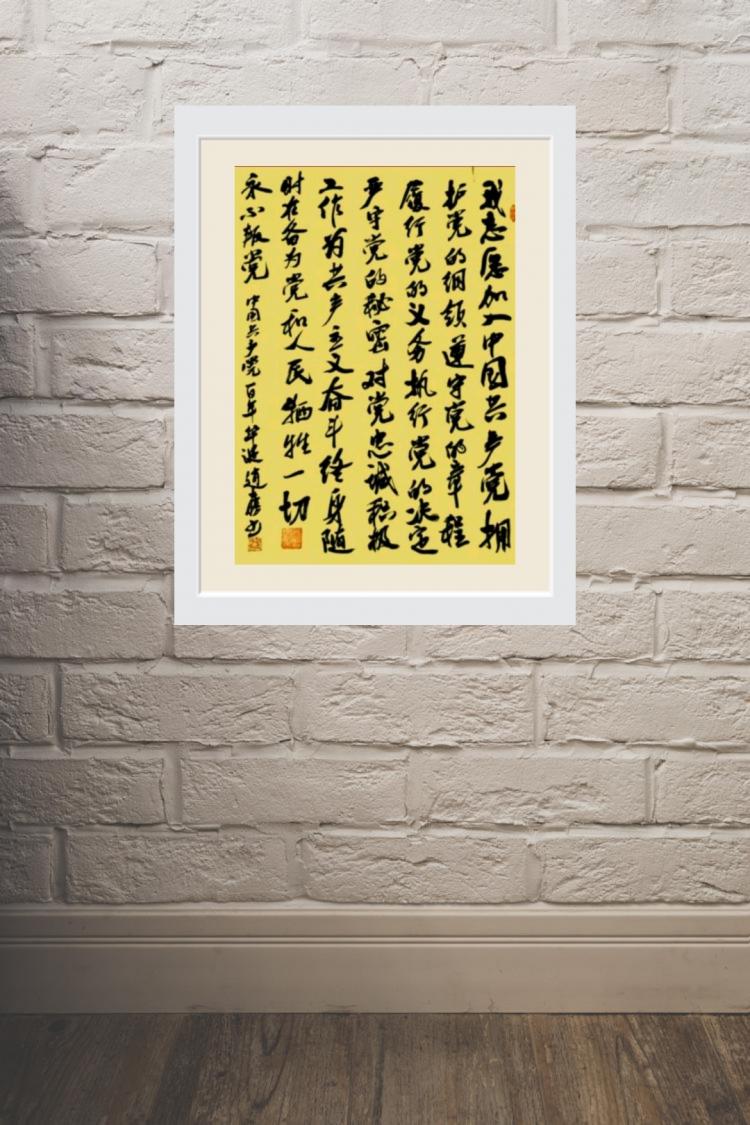 我志愿加入中国共产党拥
护党的纲领遵守党的章程
履行党的义务执行党的决定
严守党的秘密对党忠诚积极
工作为共产主义奋斗终身随
时准备为党和人民牺牲一切
永不叛党 中国共产党百年华诞 书